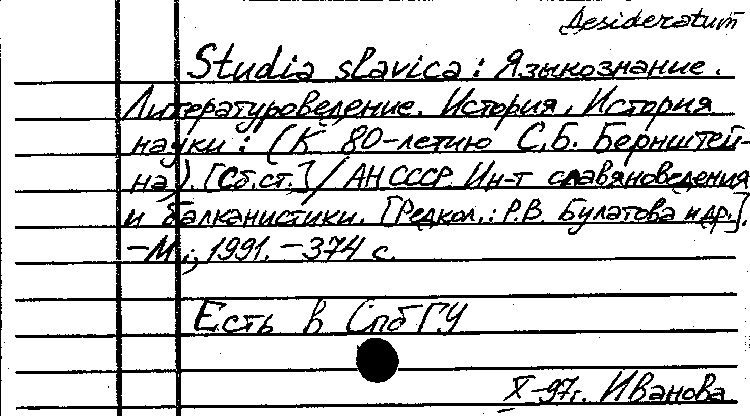 Desideratum
Studia slavica: Языкознание.
Литературоведение. История, История
науки: (К 80-летию С.Б. Бернштей-
на). [Сб.ст.] / АН СССР. Ин-т славяноведения
и балканистики. [Редкол.: Р.В. Булатова и др.].
-М.; 1991. -374 с.
Есть в СпбГУ
X-97г. Иванова